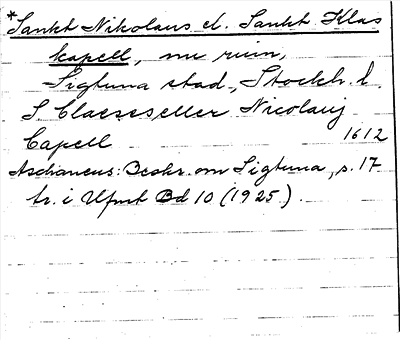 *Sankt Nikolaus el. Sankt Klas
kapell, nu ruin,
Sigtuna stad, Stockh. l.
S Claeseseller Nicolaij
Capell 1612
Aschaneus: Beskr. om Sigtuna, s. 17
tr. i Ufmt Bd 10 (1925).